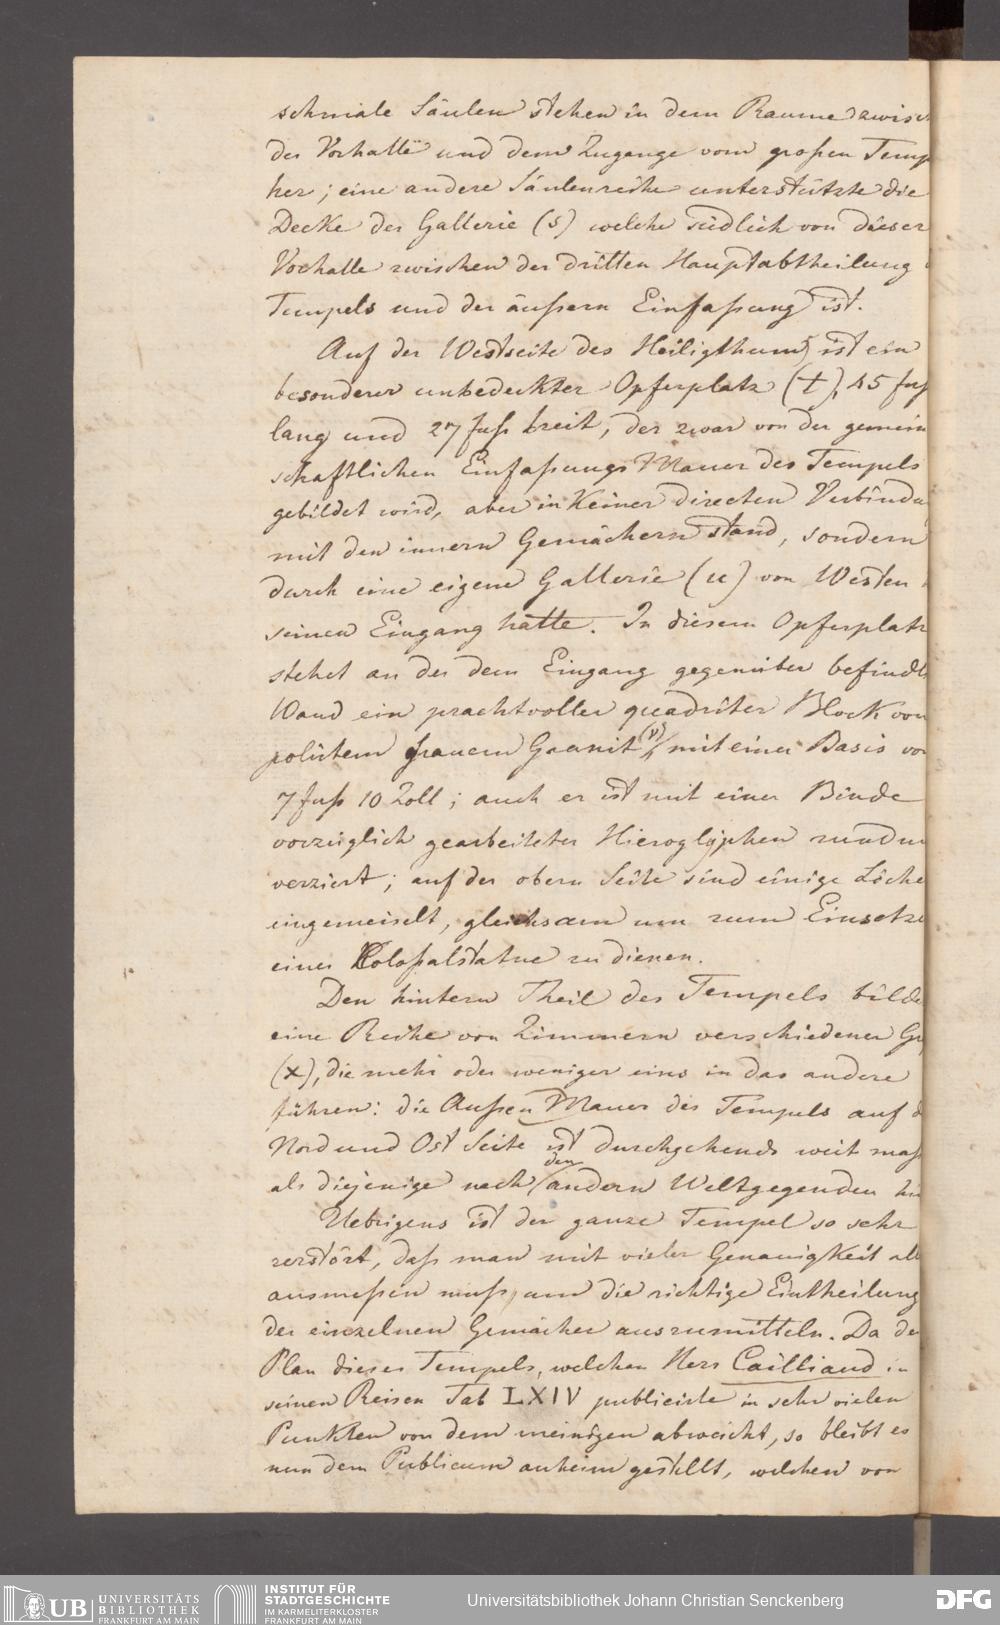 schmale Säulen stehen in dem Raume zwisc
der Vorhalle und dem Zugange vom großen Temp
her; eine andere Säulenreihe unterstützte die
Decke der Gallerie (s) welche südlich von dieser
Vorhalle zwischen der dritten Hauptabtheilung
Tempels und der äußern Einfaßung ist.
Auf der Westseite des Heiligthums ist ein
besonderer unbedeckter Opferplatz (t), 45 fuß
lang und 27 fuß breit, der zwar von der gemein
schaftlichen Einfaßungs Mauer des Tempels
gebildet wird, aber in Keiner directen Verbindu
mit den innern Gemächern stand, sondern
durch eine eigene Gallerie (u) von Westen
seinen Eingang hatte. In diesem Opferplatz
stehet an der dem Eingang gegenüber befindl
Wand ein prachtvoller quadrater Block von
polirtem grauem Granit (v) mit einer Basis vo
7 fuß 10 Zoll; auch er ist mit einer Binde
vorzüglich gearbeiteter Hieroglyphen rundu
verziert; auf der obern Seite sind einige Löche
eingemeiselt, gleichsam um zum Einsetze
einer Kolosalstatue zu dienen.
Den hintern Theil des Tempels bilde
eine Reihe von Zimmern verschiedener Gr
(x), die mehr oder weniger eins in das andere
führen: die Außen Mauer des Tempels auf d
Nord und Ost Seite ist durchgehends weit maß
als diejenige nach den andern Weltgegenden hi
Uebrigens ist der ganze Tempel so sehr
zerstört, daß man mit vieler GenauigKeit all
ausmeßen muß, um die richtige Eintheilung
der einzelnen Gemächer auszumitteln. Da der
Plan dieses Tempels, welchen Herr Cailliaud in
seinen Reisen Tab LXIV publicirte in sehr vielen
Punkten von dem meinigen abweicht, so bleibt es
nun dem Publicum anheim gestellt, welchen von
UB UNIVERSITÄTS
BIBLIOTHEK
FRANKFURT AM MAIN
INSTITUT FÜR
STADTGESCHICHTE
IM KARMELITERKLOSTER
FRANKFURT AM MAIN
Universitätsbibliothek Johann Christian Senckenberg
DFG